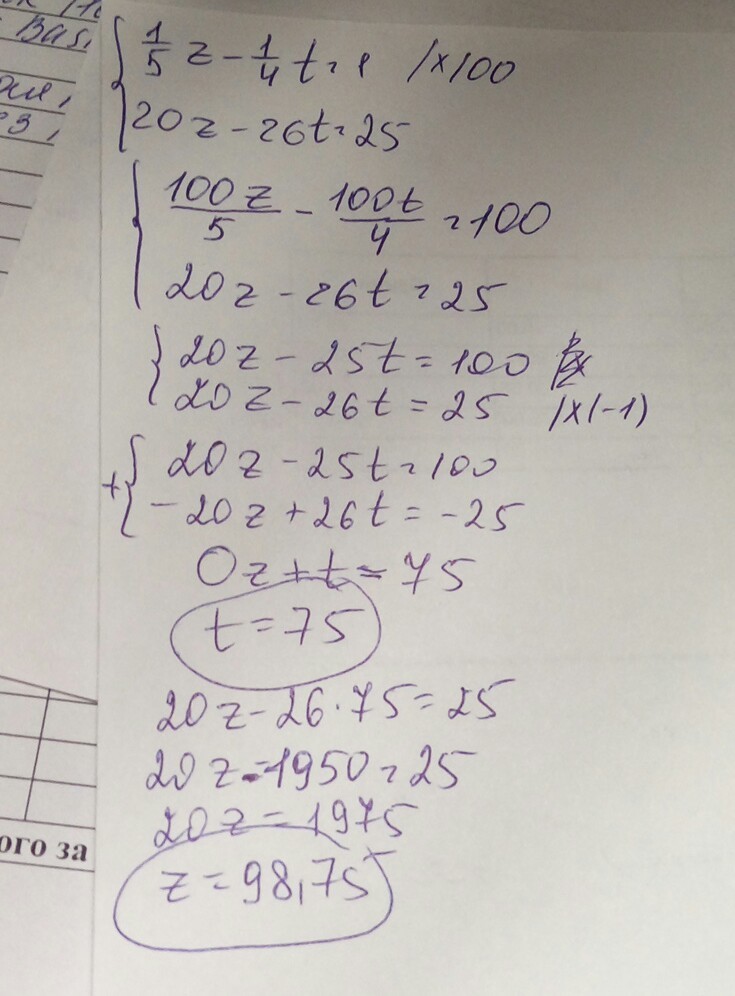 Bas,
{ 1/5 z - 1/4 t = 1 /x100
20z - 26t = 25
{ 100z/5 - 100t/4 = 100
20z - 26t = 25
{ 20z - 25t = 100
20z - 26t = 25 /x(-1)
+{ 20z - 25t = 100
-20z + 26t = -25
0z + t = 75
t = 75
20z - 26·75 = 25
20z - 1950 = 25
20z = 1975
z = 98,75
ого за